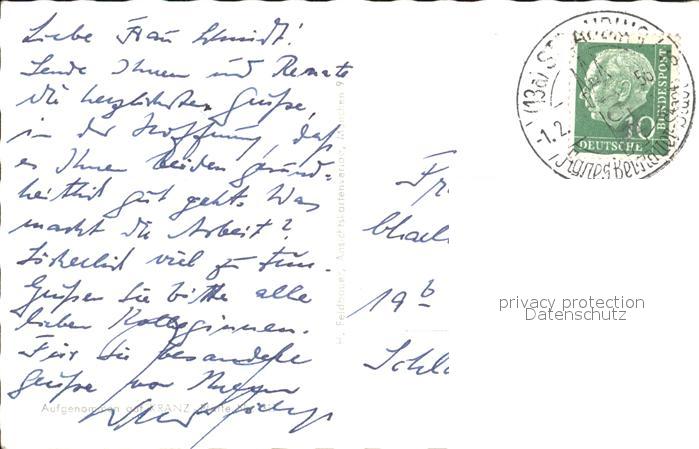 Liebe Frau Schmidt!
Sende Ihnen und Renate
die herzlichsten Grüße,
in der Hoffnung, daß
es Ihnen beiden gesund-
heitlich gut geht. Was
macht die Arbeit?
Sicherlich viel zu tun.
Grüßen Sie bitte alle
lieben Kolleginnen.
Für Sie besondere
Grüße von Ihrem
Aufgenommen auf KRANZ
H. Feldbauer, Ansichtskartenverlag, München 9
(13a)
-1.2.
58
10
BUNDESPOST
DEUTSCHE
Fr
19b
Schl
privacy protection
Datenschutz